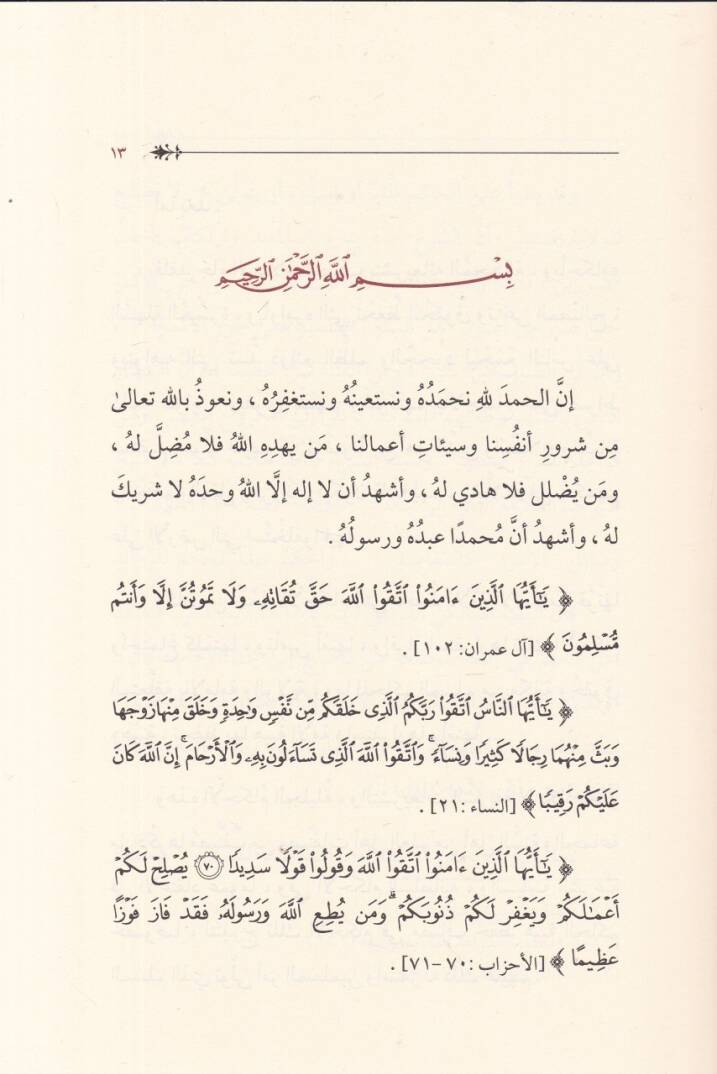 ١٣
بِسْمِ ٱللَّهِ ٱلرَّحْمَٰنِ ٱلرَّحِيمِ
إنَّ الحمدَ للهِ نحمَدُهُ ونستعينُهُ ونستغفِرُهُ ، ونعوذُ بالله تعالىٰ
مِن شرورِ أنفُسِنا وسيئاتِ أعمالنا ، مَن يهدِهِ اللهُ فلا مُضِلَّ لهُ ،
ومَن يُضْلل فلا هادي لهُ ، وأشهدُ أن لا إله إلَّا اللهُ وحدَهُ لا شريكَ
لهُ ، وأشهدُ أنَّ مُحمدًا عبدُهُ ورسولُهُ .
﴿ يَٰٓأَيُّهَا ٱلَّذِينَ ءَامَنُوا۟ ٱتَّقُوا۟ ٱللَّهَ حَقَّ تُقَاتِهِۦ وَلَا تَمُوتُنَّ إِلَّا وَأَنتُم
مُّسْلِمُونَ ﴾ [آل عمران: ١٠٢] .
﴿ يَٰٓأَيُّهَا ٱلنَّاسُ ٱتَّقُوا۟ رَبَّكُمُ ٱلَّذِى خَلَقَكُم مِّن نَّفْسٍ وَٰحِدَةٍ وَخَلَقَ مِنْهَا زَوْجَهَا
وَبَثَّ مِنْهُمَا رِجَالًا كَثِيرًا وَنِسَآءً ۚ وَٱتَّقُوا۟ ٱللَّهَ ٱلَّذِى تَسَآءَلُونَ بِهِۦ وَٱلْأَرْحَامَ ۚ إِنَّ ٱللَّهَ كَانَ
عَلَيْكُمْ رَقِيبًا ﴾ [النساء :٢١] .
﴿ يَٰٓأَيُّهَا ٱلَّذِينَ ءَامَنُوا۟ ٱتَّقُوا۟ ٱللَّهَ وَقُولُوا۟ قَوْلًا سَدِيدًا ٧٠ يُصْلِحْ لَكُمْ
أَعْمَٰلَكُمْ وَيَغْفِرْ لَكُمْ ذُنُوبَكُمْ ۗ وَمَن يُطِعِ ٱللَّهَ وَرَسُولَهُۥ فَقَدْ فَازَ فَوْزًا
عَظِيمًا ﴾ [الأحزاب : ٧٠-٧١] .